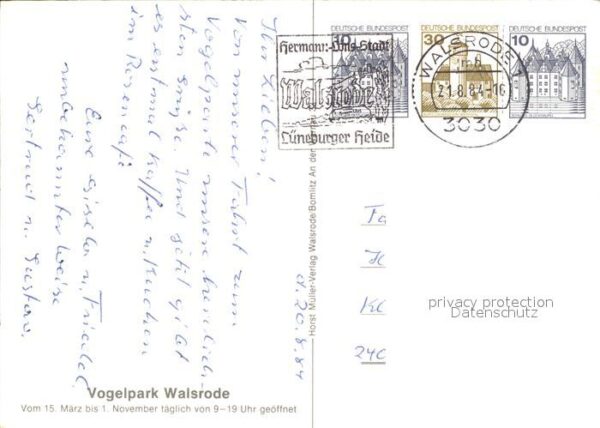 Ihr Lieben!
Von unserer Fahrt zum
Vogelpark unsere herzlich-
sten Grüße. Und jetzt gibt
es erstmal Kaffee u. Kuchen
im Rosencafé
Eure Giesela u. Friedel
unbekannter Weise
Gertrud u. Gustav.
d. 20.8.84
Vogelpark Walsrode
Vom 15. März bis 1. November täglich von 9–19 Uhr geöffnet
Horst Müller-Verlag Walsrode/Bomlitz An den
DEUTSCHE BUNDESPOST
10
DEUTSCHE BUNDESPOST
30
DEUTSCHE BUNDESPOST
10
Hermann-Löns-Stadt
Walsrode
Lüneburger Heide
WALSRODE 1
mb
21.8.84-16
3030
Fa
Kl
240
privacy protection
Datenschutz